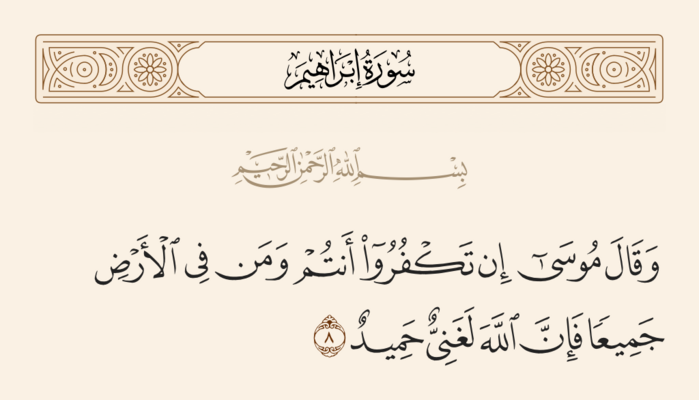 سُورَةُ إِبْرَاهِيمَ
بِسْمِ ٱللَّهِ ٱلرَّحْمَٰنِ ٱلرَّحِيمِ
وَقَالَ مُوسَىٰٓ إِن تَكْفُرُوٓا۟ أَنتُمْ وَمَن فِى ٱلْأَرْضِ
جَمِيعًا فَإِنَّ ٱللَّهَ لَغَنِىٌّ حَمِيدٌ ٨